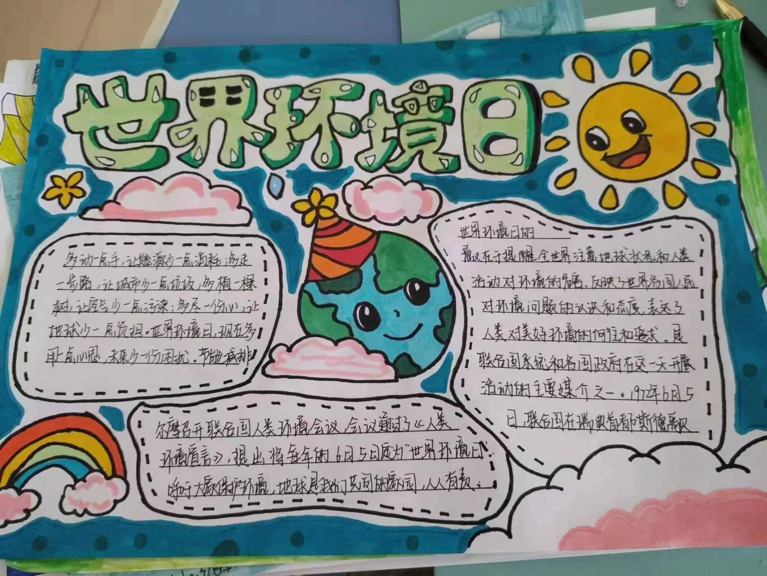 世界环境日
多动一点手,让资源少一点消耗,多走
一步路,让城市少一点垃圾,多植一棵
树,让空气少一点污染,多尽一份心,让
地球少一点负担。世界环境日,现在多
一点心思,未来少一份困扰,节能减排
世界环境日的
意义在于提醒全世界注意地球状况和人类
活动对环境的危害。反映了世界各国人民
对环境问题的认识和态度,表达了
人类对美好环境的向往和追求。是
联合国系统和各国政府在这一天开展
活动的主要媒介之一。1972年6月5
日,联合国在瑞典首都斯德哥
尔摩召开联合国人类环境会议,会议通过了《人类
环境宣言》,提出将每年的6月5日定为"世界环境日
大家保护环境,地球是我们共同的家园,人人有责。